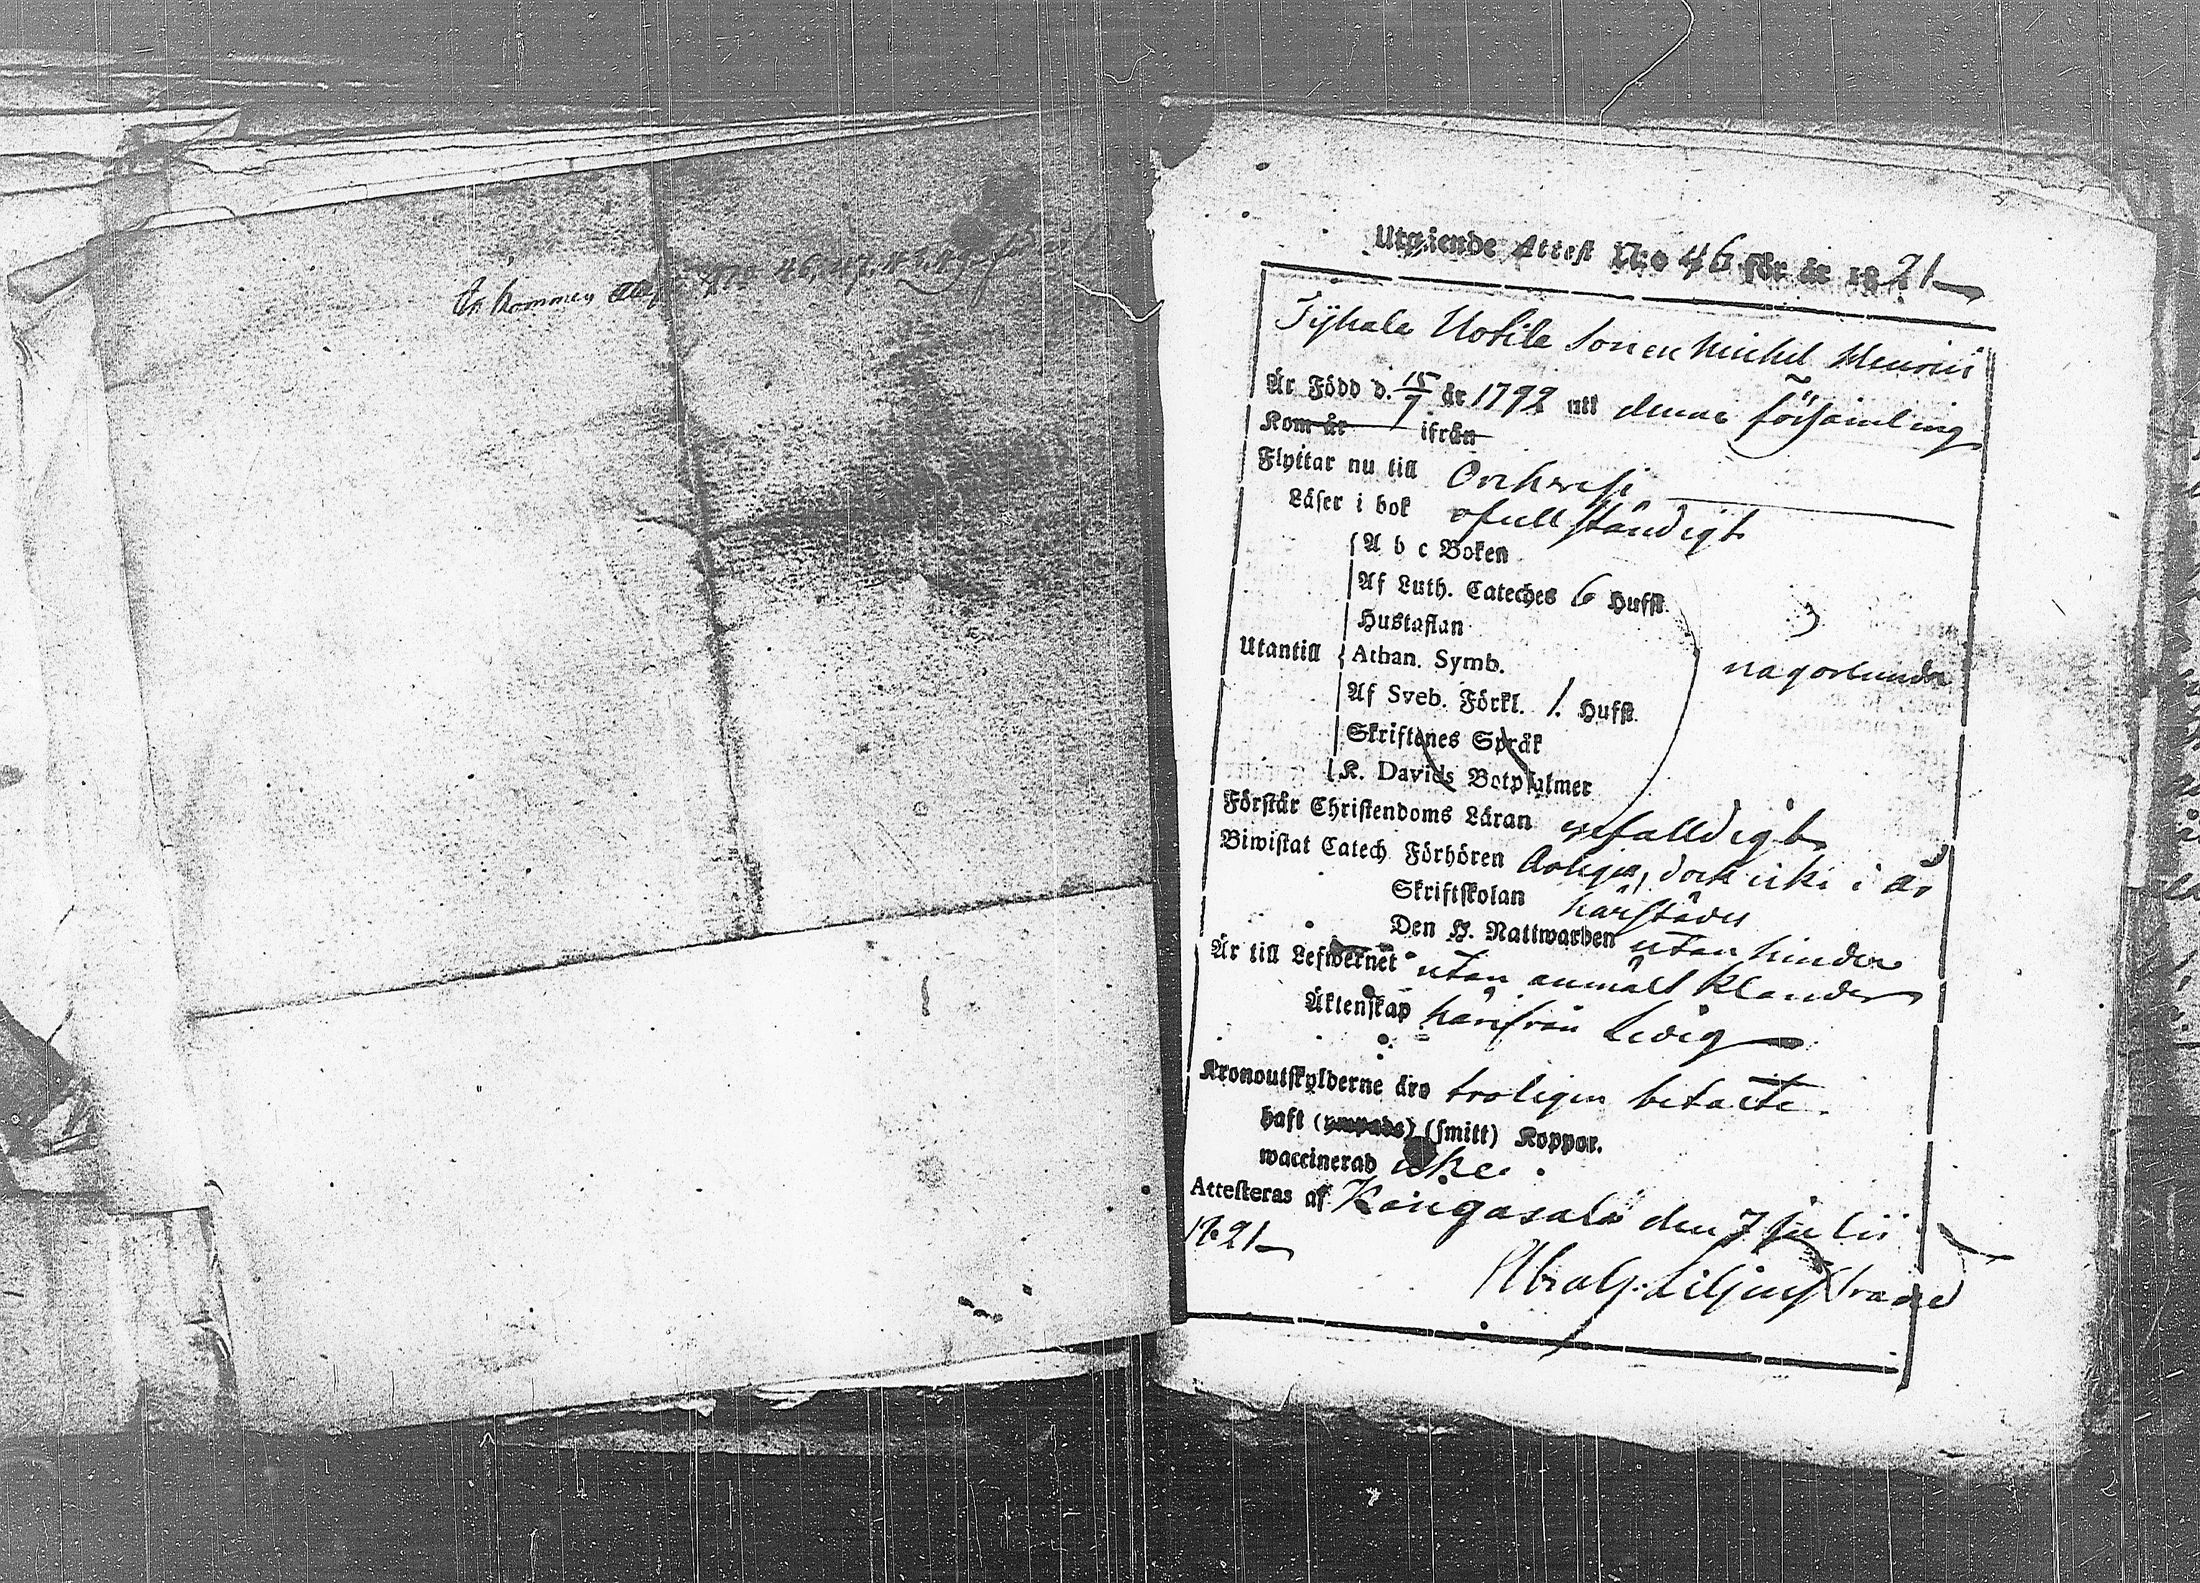 Inkommen Attest No 46, 47, 48, 49
Utgående Attest N:o 46 för år 1821
Tÿhala Uotila Sonen Michel Henrics
Är Född d. 15/7 år 1792 uti denna församling
Kom år ifrån
Flyttar nu till Orihvesi
Läser i bok ofullständigt
A b c Boken
Af Luth. Cateches 6 Hufst.
Hustaflan
Utantill Athan. Symb. någorlunda
Af Sveb. Förkl. 1. Hufst.
Skriftenes Språk
K. Davids Botpsalmer
Förstår Christendoms Läran enfalldigt
Biwistat Catech Förhören årligen, dock icke i år
Skriftskolan härstädes
Den H. Nattwarden utan hinder
Är till Lefwernet utan anmält klander
Äktenskap härifrån Ledig
Kronoutskylderne äro troligen betalte.
haft (ympade) (smitt) Koppor.
waccinerad icke.
Attesteras af Kangasala den 7 julii
1821
Abrah: Liljenstrand